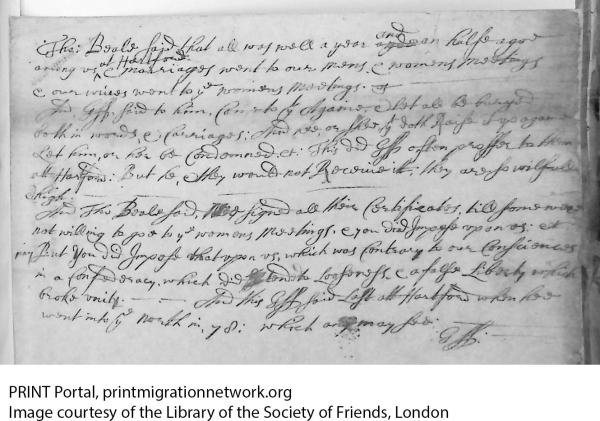 Tho: Beale said that all was well a year and an halfe agoe
among us at Hartford, & marriages went to our mens, & womens Meetings
& our wives went to ye womens Meetings: &
And Gff: said to him, Com to it Againe, & Let all be buryed
both in words, & Carriages: And hee, or shee yt doth Raise it up againe
Let him, or her be Condemned, &c: This did Gff: often proffer to them
att Hartford: But he, & they would not Receive it; they are so wilfull
& high:
And Tho Beale said, Wee signed all their Certificates, till some were
not willing to goe to ye womens Meetings, & you did Impose upon us: &c
But You did Impose that upon us, which was Contrary to our Consciences
in a Confederacy, which did tend to Loosness, & a false Liberty which
broke unity. And this Gff: said Last att Hartford when hee
went into ye North in, 78: which any may see:
Gff:
PRINT Portal, printmigrationnetwork.org
Image courtesy of the Library of the Society of Friends, London